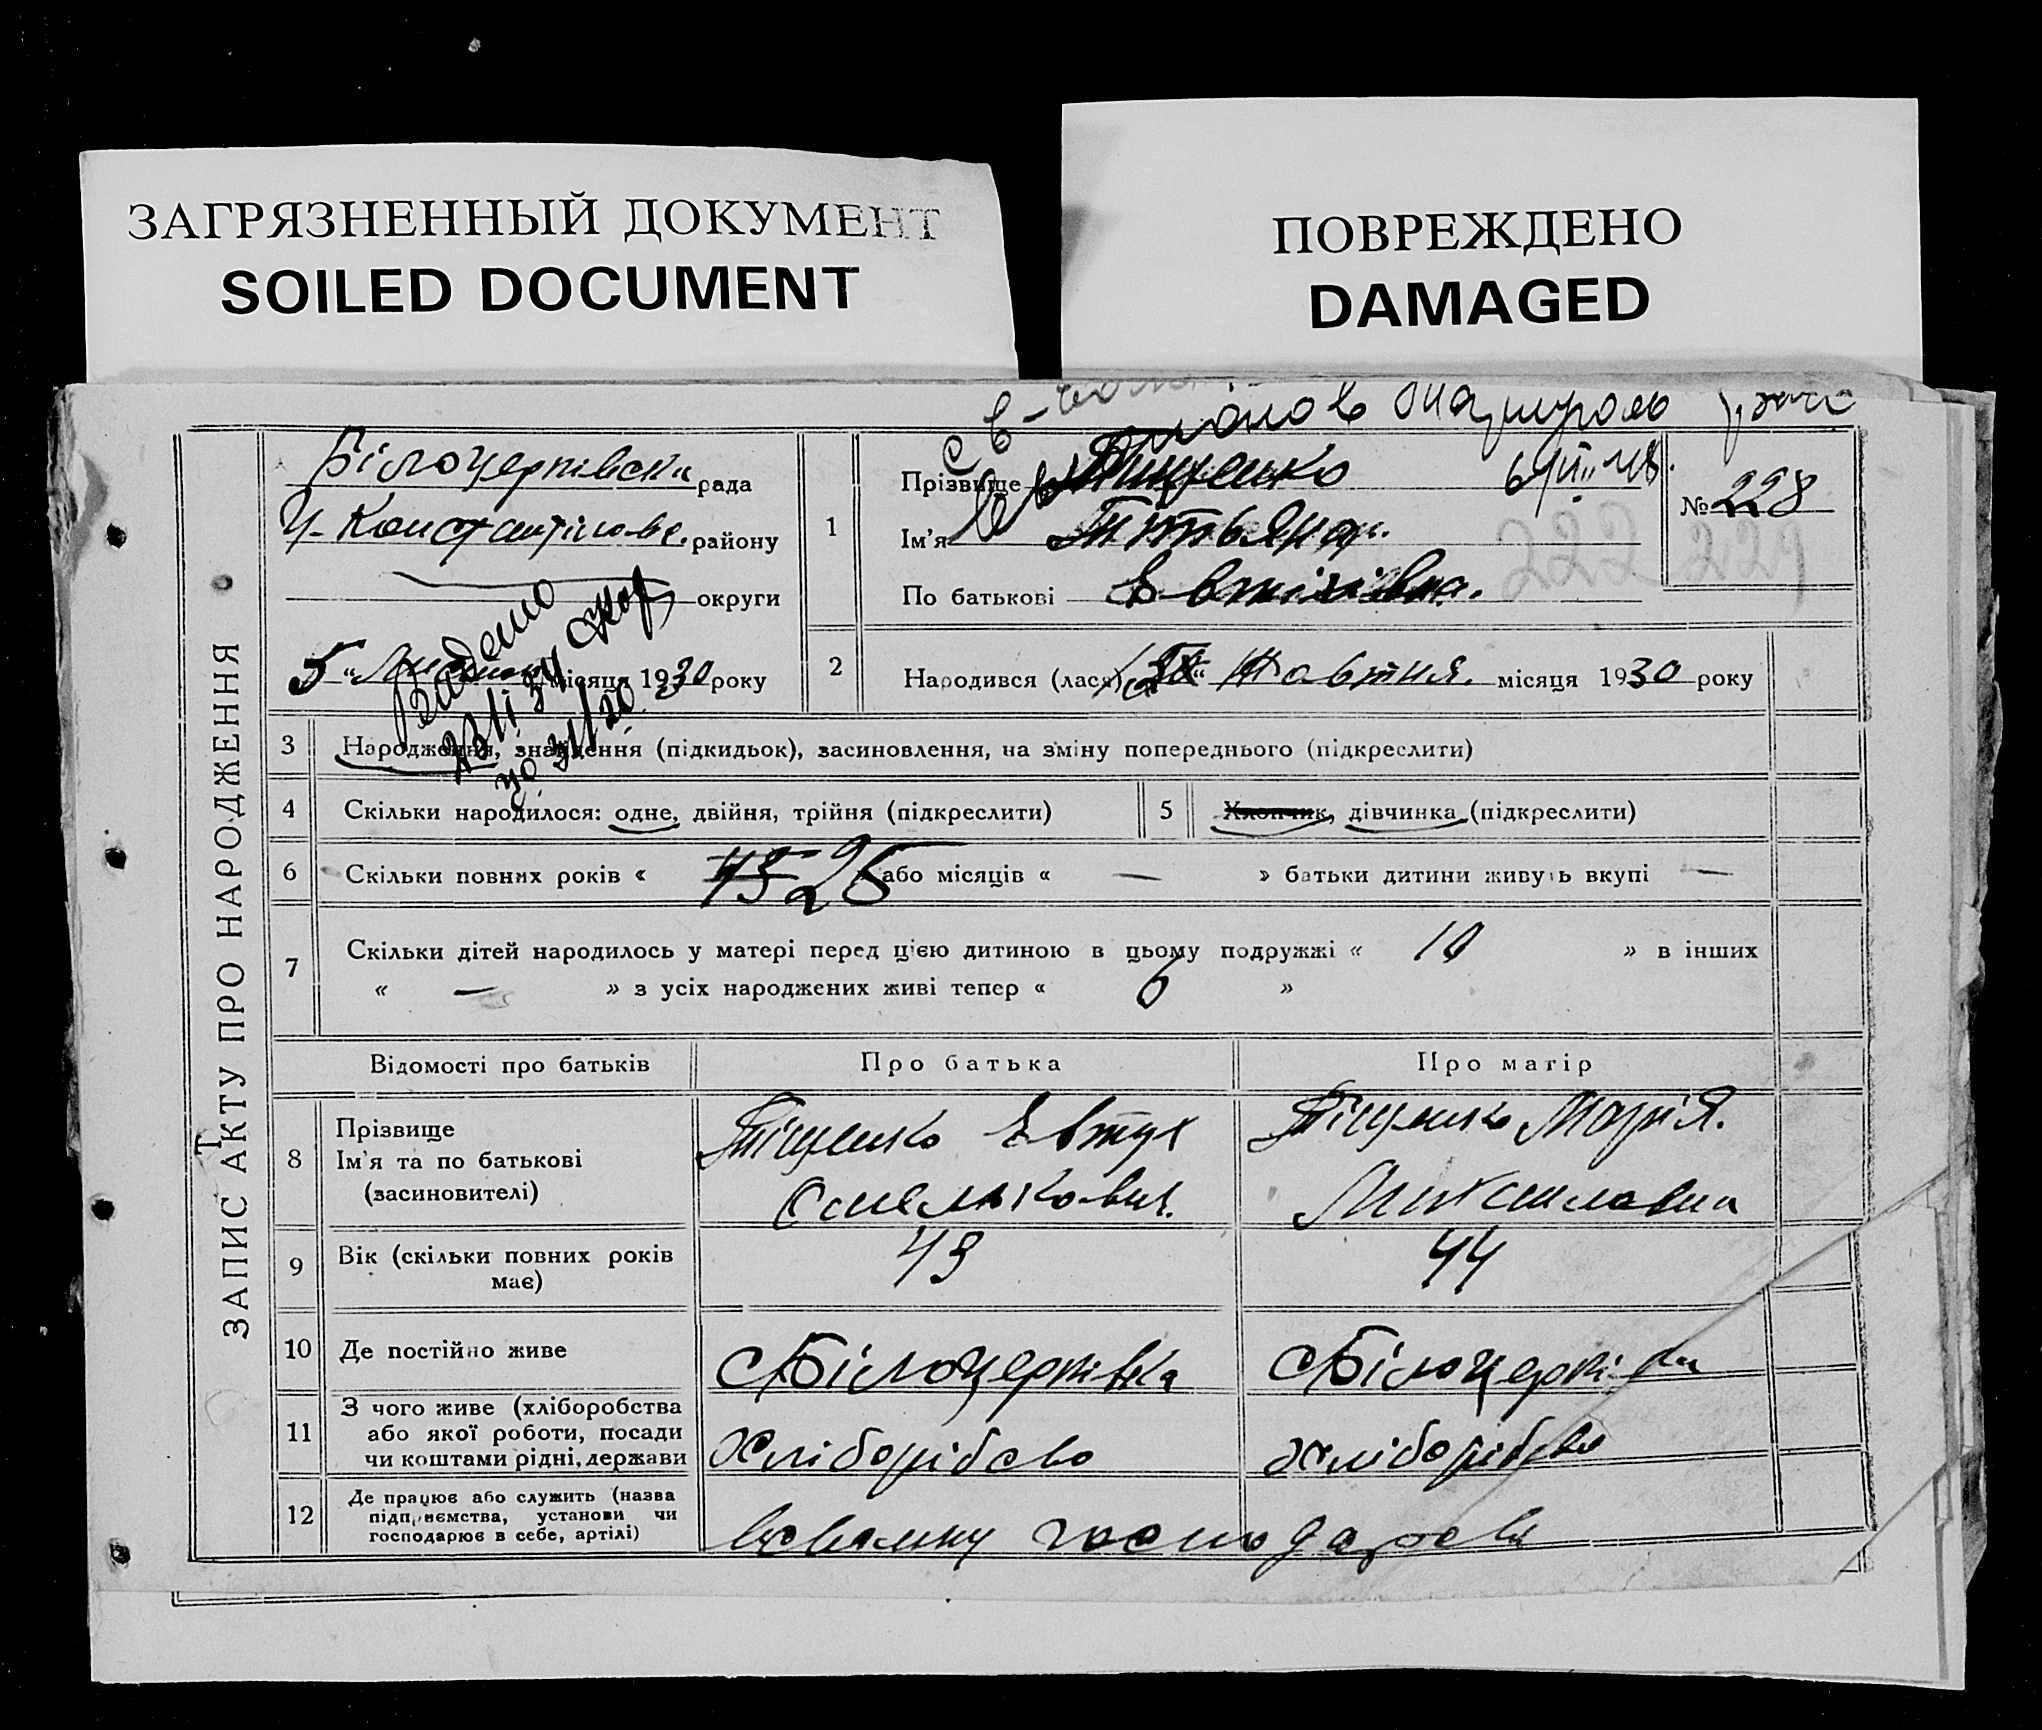 ЗАГРЯЗНЕННЫЙ ДОКУМЕНТ
SOILED DOCUMENT
ПОВРЕЖДЕНО
DAMAGED
ЗАПИС АКТУ ПРО НАРОДЖЕННЯ
Т
Білоцерківска рада
району
округи
5 " місяця 1930 року
Видено
1
Прізвище Тищенко
Ім'я Титьяна
По батькові Евтихівна.
№ 228
2
Народився (лася) Жовтня. місяця 1930 року
3 Народження, знайдення (підкидьок), засиновлення, на зміну попереднього (підкреслити)
4 Скільки народилося: одне, двійня, трійня (підкреслити)
5 Хлопчик, дівчинка (підкреслити)
6 Скільки повних років « 43 25 або місяців « — » батьки дитини живуть вкупі —
7 Скільки дітей народилось у матері перед цією дитиною в цьому подружжі « 10 » в інших
« — » з усіх народжених живі тепер « 6 »
Відомості про батьків Про батька Про матір
8 Прізвище
Ім'я та по батькові
(засиновителі)
Тіщенко Евтух
Омелькович.
Тіщенко Марія.
9 Вік (скільки повних років
має)
43 44
10 Де постійно живе
с Білоцерківка с Білоцерківка
11 З чого живе (хліборобства
або якої роботи, посади
чи коштами рідні, держави
Хліборібсво Хліборібсво
12 Де працює або служить (назва
підприємства, установи чи
господарює в себе, артілі)